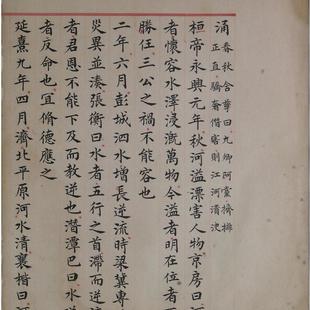 涌春秋含孳曰九卿阿黨擠排
正直驕奢僭害則江河潰決
桓帝永興元年秋河溢漂害人物京房曰河
者懷容水澤浸漑萬物今溢者明在位者不
勝任三公之禍不能容也
二年六月彭城泗水增長逆流時梁冀專
災異並湊張衡曰水者五行之首滯而逆流
者君恩不能下及而教逆也潛潭巴曰水逆
者反命也宜脩德應之
延熹九年四月濟北平原河水清襄楷曰河